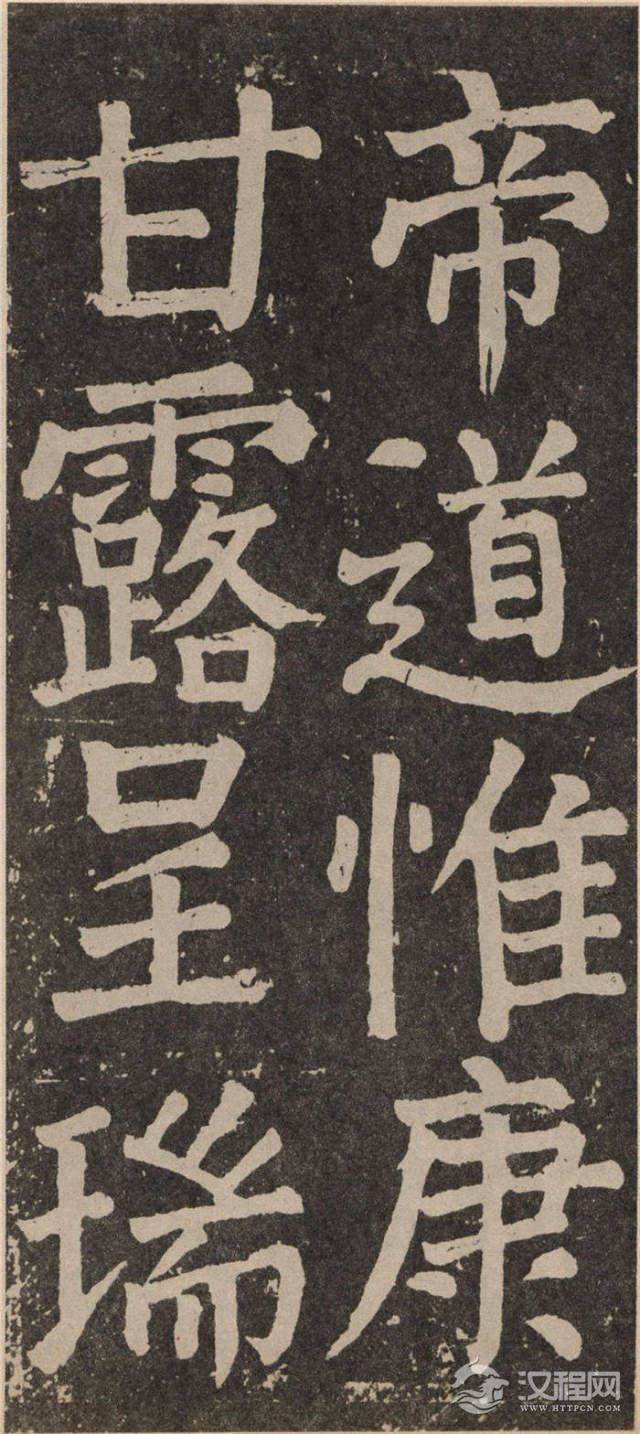 帝道惟康
甘露呈瑞
汉程网
WWW.HTTPCN.COM